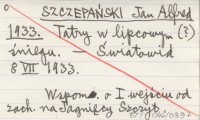 SZCZEPAŃSKI Jan Alfred
1933. Tatry w lipcowym (?)
śniegu. — Światowid
8 VII 1933.
Wspomn. o I wejściu od
zach. na Jagnięcy Szczyt.